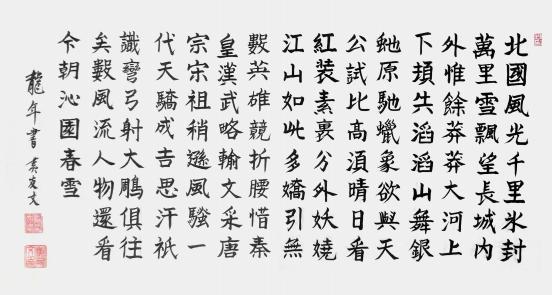 北國風光千里氷封
萬里雪飄望長城内
外惟餘莽莽大河上
下頓失滔滔山舞銀
虵原馳蠟象欲與天
公試比高須晴日看
紅裝素裹分外妖嬈
江山如此多嬌引無
數英雄競折腰惜秦
皇漢武略輸文采唐
宗宋祖稍遜風騷一
代天驕成吉思汗祇
識彎弓射大鵰俱往
矣數風流人物還看
今朝沁園春雪
龍年書